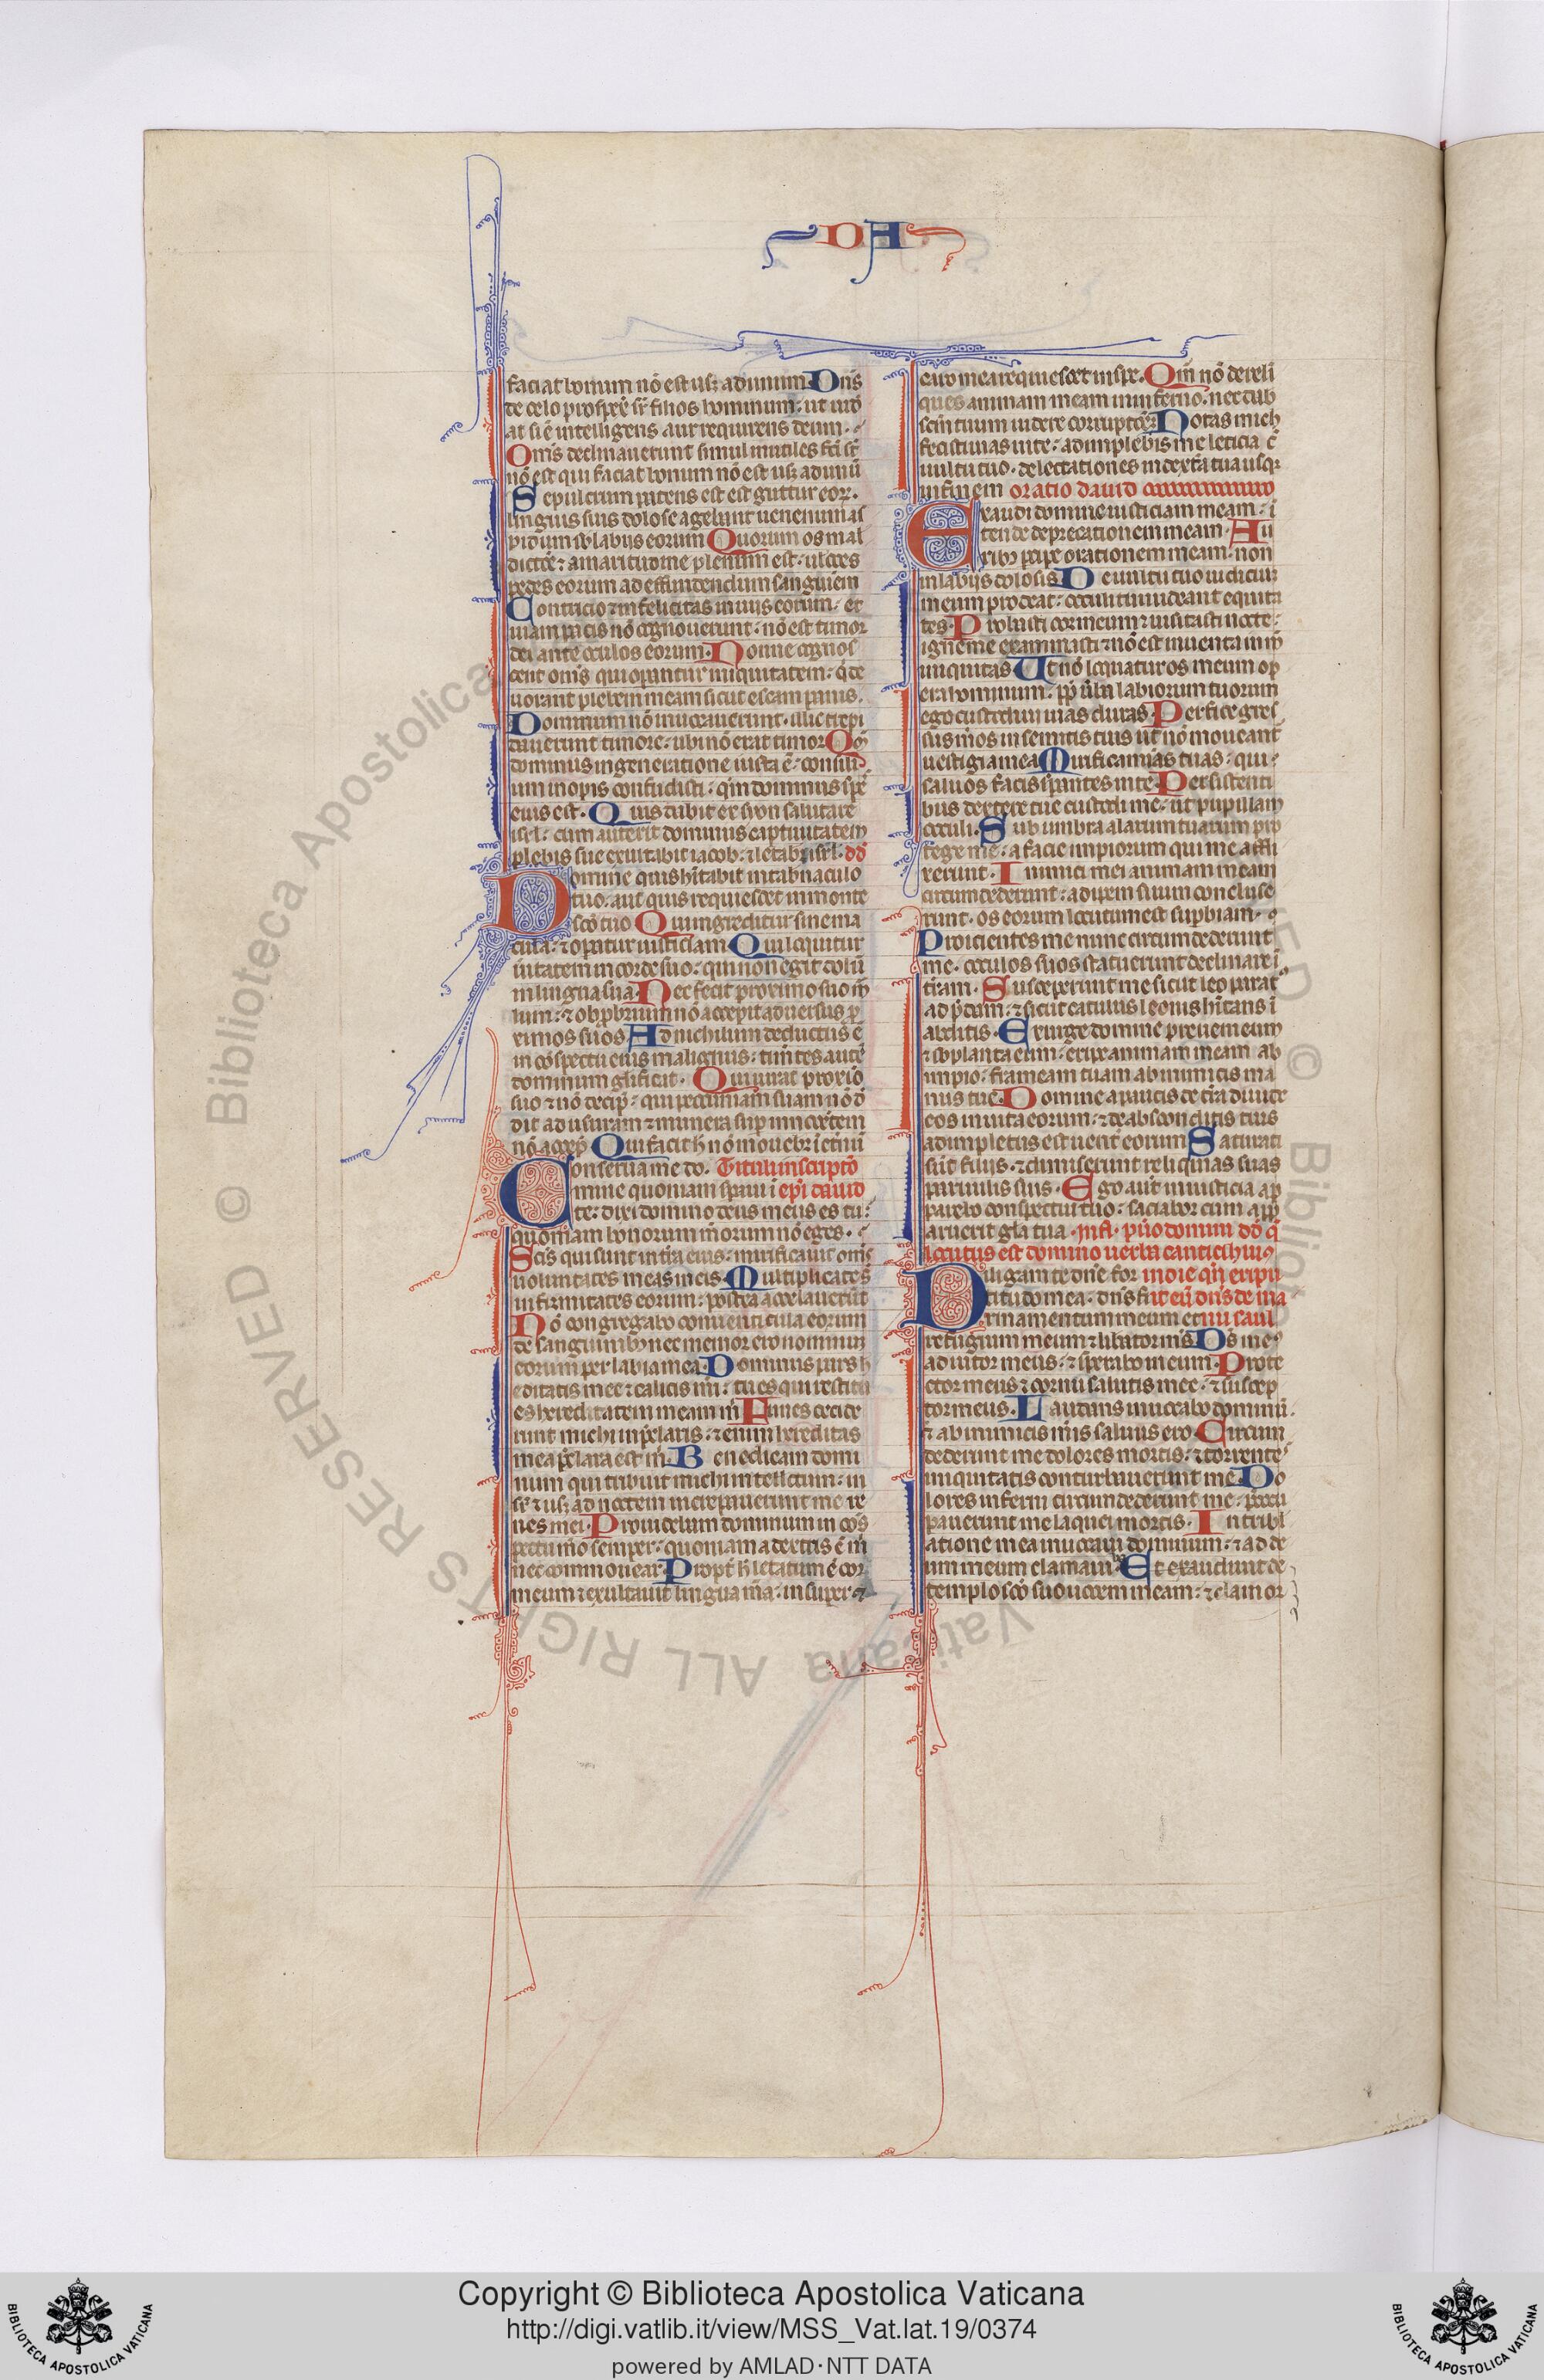 DA
faciat bonum nō est usꝫ ad unum Dn̄s
de celo prospex̄ sr̄ filios hominum: ut uid
at si ē intelligens aut requirens deum.
Om̄s declinauerunt simul inutiles fc̄i st̄
nō est qui faciat bonum nō est usꝫ ad unū
Sepulcrum patens est est guttur eoꝝ.
linguis suis dolose agebant uenenum as
pidum sb labiis eorum Quorum os mal
dictōe ⁊ amaritudine plenum est: ueloces
pedes eorum ad effundendum sanguinem
Contricio ⁊ infelicitas in uiis eorum: et
uiam pacis nō cognouerunt: nō est timor
dei ante oculos eorum. Nonne cognos
cent om̄s qui operantur iniquitatem: q̄ de
uorant plebem meam sicut escam panis.
Dominum nō inuocauerunt: illic trepi
dauerunt timore: ubi nō erat timor Qm̄
dominus in generatione iusta ē: consili
um inopis confudisti: qm̄ dominus spes
eius est. Quis dabit ex syon salutare
isrl: cum auterit dominus captiuitatem
plebis sue exultabit iacob: ⁊ letabit isrl. dd
Domine quis hītabit in tabnaculo
tuo: aut quis requiescet in monte
sco tuo Qui ingreditur sine ma
cula: ⁊ opatur iusticiam Qui loquitur
ūitatem in corde suo: qui non egit dolū
in lingua sua. Nec fecit proximo suo m̄
lum: ⁊ obpbrium nō accepit aduersus p
ximos suos Ad nichilum deductus ē
in cōspectu eius malignus: tim̄tes autē
dominum glificat. Qui iurat proxīo
suo ⁊ nō decip̄: qui pecuniam suam nō d
dit ad usuram ⁊ munera sup innocentem
nō accep̄ Qui facit h̄ nō mouebr̄ ī etnū
Conserua me do. Tituli inscriptō
mine quoniam spaui ī epi dauid
te: dixi domino deus meus es tu:
quoniam bonorum meorum nō eges.
Scīs qui sunt in tr̄a eius: mirificauit om̄s
uoluntates meas in eis Multiplicate s̄
infirmitates eorum: postea accelauerūt
Nō congregabo conuenticula eorum
de sanguinibꝫ nec memor ero nominuꝫ
eorum per labia mea. Dominus pars h
editatis mee ⁊ calicis mī: tu es qui restitu
es hereditatem meam m̄ Funes cecide
runt michi in p̄claris: ⁊ enim hereditas
mea p̄clara est m̄. Benedicam domi
num qui tribuit michi intellectum: in
sr̄ ⁊ usꝫ ad noctem increpauerunt me re
nes mei. Prouidebam dominum in cōs
pectu mō semper: quoniam a dextris ē m̄
ne commouear. Propt̄ h letatum ē cor
meum ⁊ exultauit lingua m̄a: in super ⁊
caro mea requiescet in spe. Qm̄ nō dereli
ques animam meam in inferno: nec dab
scm̄ tuum uidere corruptōem Notas mich
fecisti uias uite: adimplebis me leticia c̄
uultu tuo: delectationes in dextra tua usqꝫ
in finem oratio dauid
Exaudi domine iusticiam meam: ī
tende deprecationem meam. Au
ribꝫ pcipe orationem meam: non
in labiis dolosis De uultu tuo iudiciuꝫ
meum prodeat: oculi tui uideant equita
tes. Probasti cor meum ⁊ uisitasti nocte:
igne me examinasti ⁊ nō est inuenta in m̄
iniquitas Ut nō loquatur os meum op
era hominum: pp ūba labiorum tuorum
ego custodiui uias duras. Perfice gres
sus m̄os in semitis tuis ut nō moueant
uestigia mea Mirifica mīas tuas: qui
saluos facis spantes in te. Persistenti
bus dextere tue custodi me: ut pupillam
oculi. Sub umbra alarum tuarum pro
tege me: a facie impiorum qui me affli
xerunt. Inimici mei animam meam
circumdederunt: adipem suum concluse
runt: os eorum locutum est supbiam.
Proicientes me nunc circumdederunt
me: oculos suos statuerunt declinare ī
tr̄am. Susceperunt me sicut leo parat̉
ad p̄dam: ⁊ sicut catulus leonis hītans ī
abditis. Exurge domine preueni eum
⁊ sbplanta eum: eripe animam meam ab
impio: frameam tuam ab inimicis ma
nus tue. Domine a paucis de tr̄a diuide
eos in uita eorum: ⁊ de absconditis tuis
adimpletus est uent̄ eorum Saturati
sūt filiis: ⁊ dimiserunt reliquias suas
paruulis suis. Ego aut̄ in iusticia ap
parebo conspectui tuo: saciabor cum app
aruerit gla tua. In fi. puo domini dd q̄
locutus est domino uerba cantici huiꝰ
Diligam te dn̄e for in die q̄ eripu
titudo mea: dn̄s fir it eū dn̄s de ma
mamentum meum et nu saul
refugium meum ⁊ libator m̄s Ds meꝰ
adiutor meus: ⁊ sperabo in eum. Prote
ctor meus ⁊ cornu salutis mee: ⁊ suscep
tor meus. Laudans inuocabo dominū:
⁊ ab inimicis m̄is saluus ero Circum
dederunt me dolores mortis: ⁊ torrentes
iniquitatis conturbauerunt me. Do
lores inferni circumdederunt me: p̄occu
pauerunt me laquei mortis. In tribl
atione mea inuocaui dominum: ⁊ ad de
um meum clamaui. Et exaudiuit de
templo sco suo uocem meam: ⁊ clamor
Copyright © Biblioteca Apostolica Vaticana
http://digi.vatlib.it/view/MSS_Vat.lat.19/0374
powered by AMLAD·NTT DATA
BIBLIOTECA APOSTOLICA VATICANA
BIBLIOTECA APOSTOLICA VATICANA
© Biblioteca Apostolica Vaticana ALL RIGHTS RESERVED